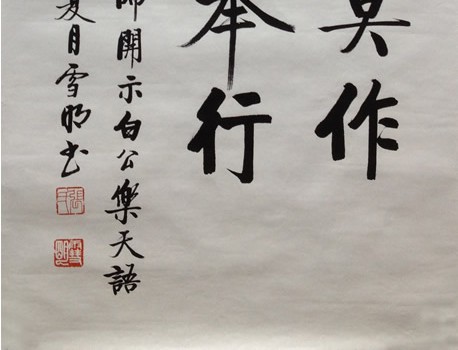 莫作
奉行
師開示白公樂天語
夏月雪明书